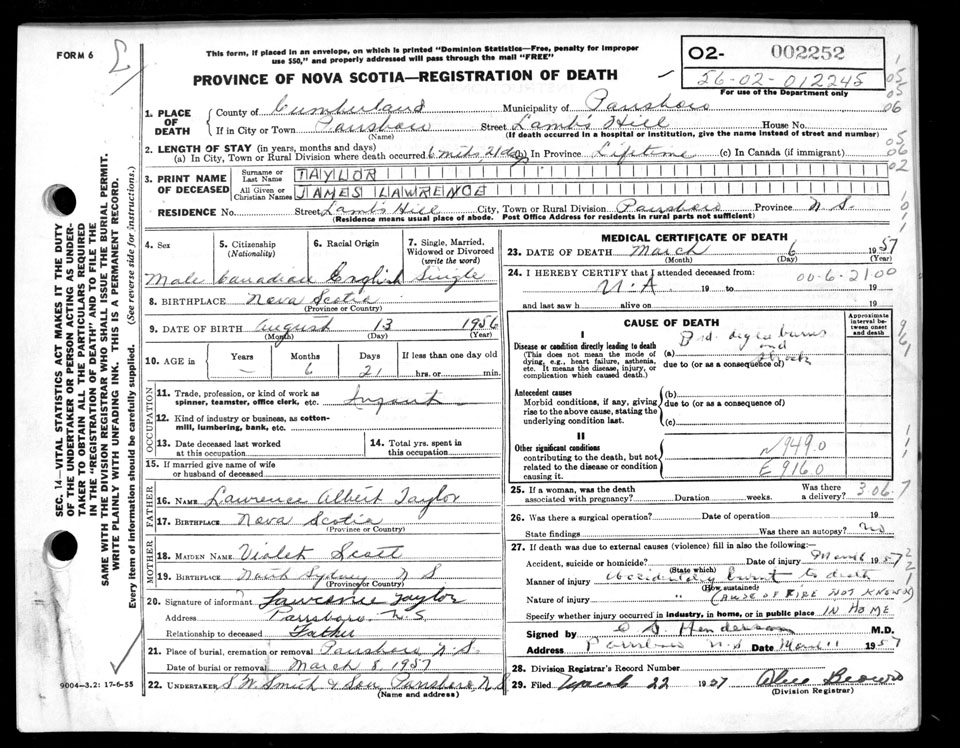 FORM 6
This form, if placed in an envelope, on which is printed "Dominion Statistics—Free, penalty for improper
use $50," and properly addressed will pass through the mail "FREE"
PROVINCE OF NOVA SCOTIA—REGISTRATION OF DEATH
O2- 002252
56-02-012245
For use of the Department only
1. PLACE OF DEATH
County of Cumberland Municipality of Parrsboro
If in City or Town Parrsboro Street Lamb's Hill House No.
(Name) (If death occurred in a hospital or institution, give the name instead of street and number)
2. LENGTH OF STAY (in years, months and days)
(a) In City, Town or Rural Division where death occurred 6 mths, 21 days In Province Lifetime (c) In Canada (if immigrant)
3. PRINT NAME OF DECEASED
Surname or Last Name TAYLOR
All Given or Christian Names JAMES LAWRENCE
RESIDENCE No. Street Lamb's Hill City, Town or Rural Division Parrsboro Province N.S.
(Residence means usual place of abode. Post Office Address for residents in rural parts not sufficient)
05
05
06
05
06
02
SEC. 14—VITAL STATISTICS ACT MAKES IT THE DUTY
OF THE UNDERTAKER OR PERSON ACTING AS UNDER-
TAKER TO OBTAIN ALL THE PARTICULARS REQUIRED
IN THE "REGISTRATION OF DEATH" AND TO FILE THE
SAME WITH THE DIVISION REGISTRAR WHO SHALL ISSUE THE BURIAL PERMIT.
WRITE PLAINLY WITH UNFADING INK. THIS IS A PERMANENT RECORD.
Every item of information should be carefully supplied. (See reverse side for instructions.)
4. Sex 5. Citizenship (Nationality) 6. Racial Origin 7. Single, Married, Widowed or Divorced (write the word)
Male Canadian English Single
8. BIRTHPLACE Nova Scotia
(Province or Country)
9. DATE OF BIRTH August 13 1956
(Month) (Day) (Year)
10. AGE in Years Months Days If less than one day
— 6 21 hrs. or min.
OCCUPATION
11. Trade, profession, or kind of work as
spinner, teamster, office clerk, etc. Infant
12. Kind of industry or business, as cotton-
mill, lumbering, bank, etc.
13. Date deceased last worked
at this occupation
14. Total yrs. spent in
this occupation
15. If married give name of wife
or husband of deceased
FATHER
16. NAME Lawrence Albert Taylor
17. BIRTHPLACE Nova Scotia
(Province or Country)
MOTHER
18. MAIDEN NAME Violet Scott
19. BIRTHPLACE North Sydney N S
(Province or Country)
20. Signature of informant Lawrence Taylor
Address Parrsboro N.S.
Relationship to deceased Father
21. Place of burial, cremation or removal Parrsboro N.S.
Date of burial or removal March 8, 1957
22. UNDERTAKER S W Smith & Son, Parrsboro, N S
(Name and address)
9004-3.2: 17-6-55
MEDICAL CERTIFICATE OF DEATH
23. DATE OF DEATH March 6 1957
(Month) (Day) (Year)
24. I HEREBY CERTIFY that I attended deceased from: 00-6-2100
N.A. 19 to 19
and last saw h alive on 19
CAUSE OF DEATH
Approximate interval between onset and death
I
Disease or condition directly leading to death
(This does not mean the mode of
dying, e.g., heart failure, asthenia,
etc. It means the disease, injury, or
complication which caused death.)
(a) 3rd. degree burns
and Shock
due to (or as a consequence of)
Antecedent causes
Morbid conditions, if any, giving
rise to the above cause, stating the
underlying condition last.
(b)
due to (or as a consequence of)
(c)
II
Other significant conditions
contributing to the death, but not
related to the disease or condition
causing it.
N949.0
E9160
25. If a woman, was the death
associated with pregnancy? Duration weeks. Was there a delivery?
306.7
26. Was there a surgical operation? Date of operation 19
State findings Was there an autopsy? No
27. If death was due to external causes (violence) fill in also the following:—
Accident, suicide or homicide? Date of injury March 6 1957
(State which)
Manner of injury accidentally burnt to death
(How sustained)
Nature of injury " (CAUSE OF FIRE NOT KNOWN)
Specify whether injury occurred in industry, in home, or in public place IN HOME
Signed by Henderson M.D.
Address Parrsboro N.S. Date March 11 1957
28. Division Registrar's Record Number
29. Filed March 22 1957
(Division Registrar)